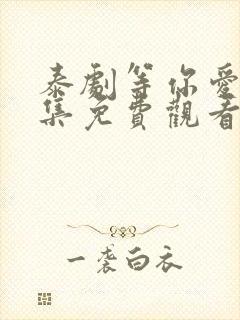 泰劇等你愛
集免費觀看
一袭白衣